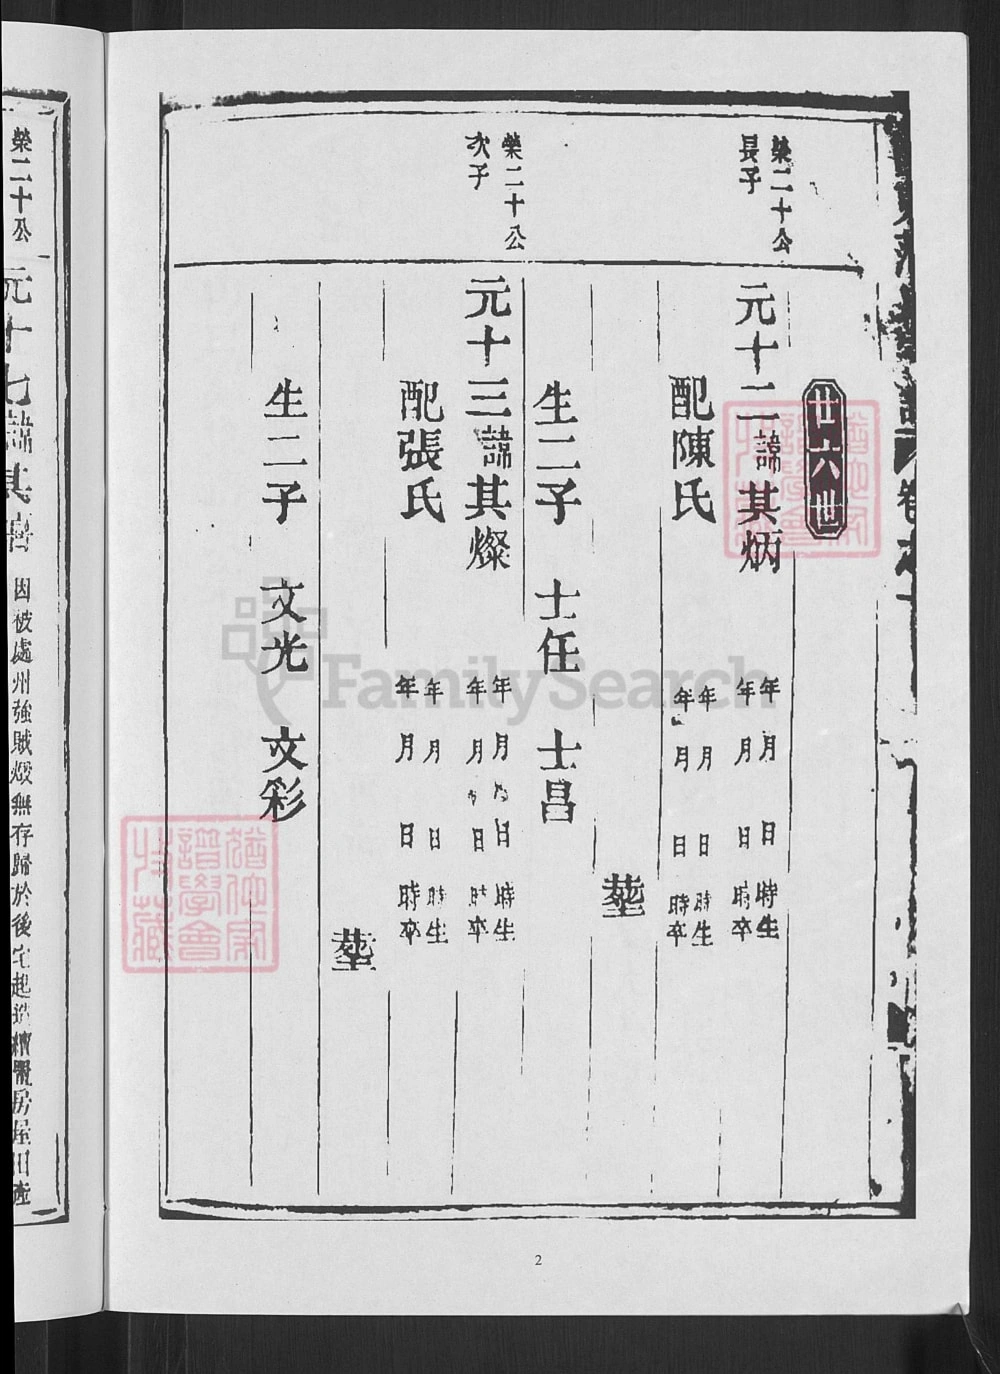 廿六世
榮二十公
長子
元十二諱其炳
年 月 日 時生
年 月 日 時卒
配陳氏
年 月 日 時生
年 月 日 時卒
葬
生二子 士任 士昌
榮二十公
次子
元十三諱其燦
年 月 日 時生
年 月 日 時卒
配張氏
年 月 日 時生
年 月 日 時卒
葬
生二子 文光 文彩
榮二十公
元十七諱其
因被處州強賊燬無存歸於後宅起造 房屋田產
譜學會
特藏
FamilySearch
2